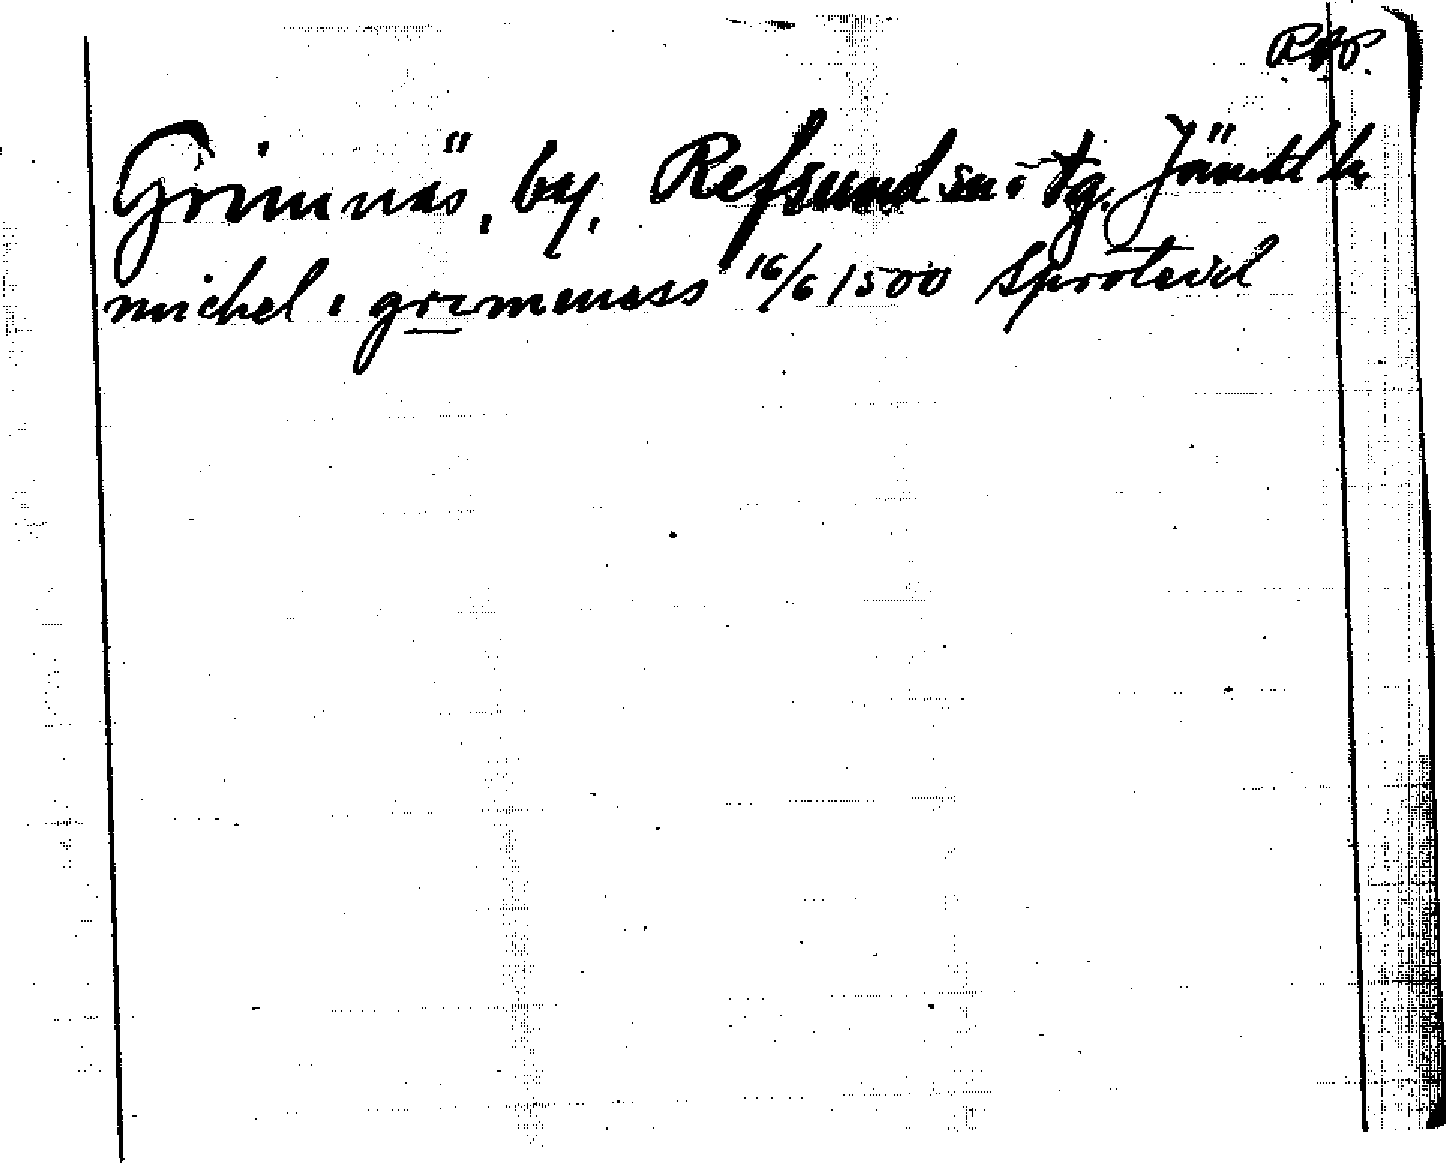 Rep.
Grimnäs, by, Refsund sn o tg. Jämtl ln
michel i grimeness 16/6 1500 Sprötevd